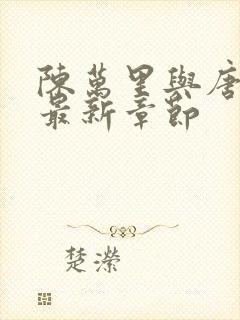 陳萬里與唐
最新章節
楚濼